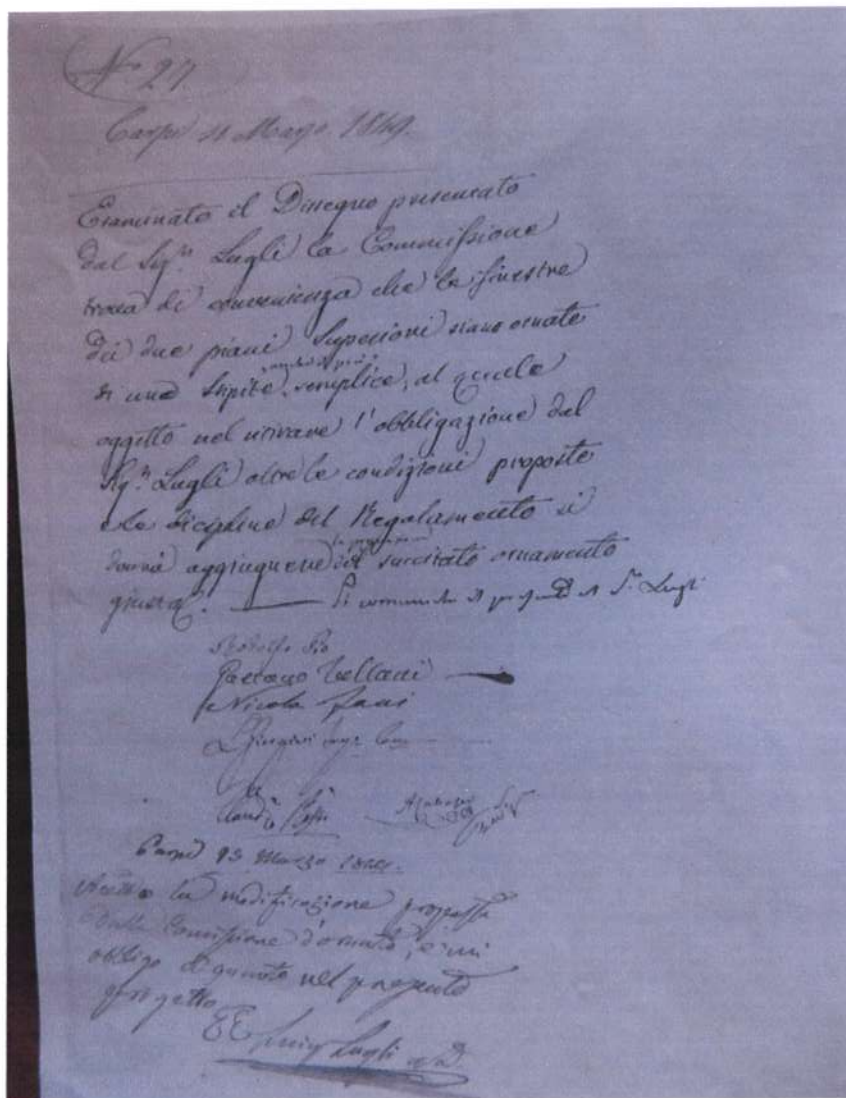 N.° 27.
Carpi 11 Marzo 1849.
Esaminato il Disegno presentato
dal Sig.r Lugli la Commissione
trova di convenienza che le finestre
dei due piani Superiori siano ornate
di una stipite semplice, al quale
oggetto nel ritirare l'obbligazione del
Sig.r Lugli oltre le condizioni proposte
e le discipline del Regolamento si
dovrà aggiungere del succitato ornamento
Si comunichi il presente al S.r Lugli
Rodolfo Pio
Gaetano Bellani
Nicola Zani
Carpi 13 Marzo
la modificazione proposta
dalla Comissione d'ornato, e mi
obbligo a quanto nel presente
progetto
Luigi Lugli